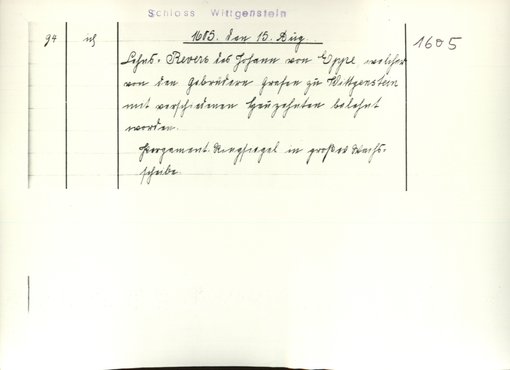 Schloss Wittgenstein
94 1605. den 15. Aug. 1605
Lehns-Revers des Johann von Eppe, welcher
von den Gebrüdern Grafen zu Wittgenstein
mit verschiedenen Heuzehnten belehnt
worden.
Pergament. Ringsiegel in großer Wachs-
scheibe.